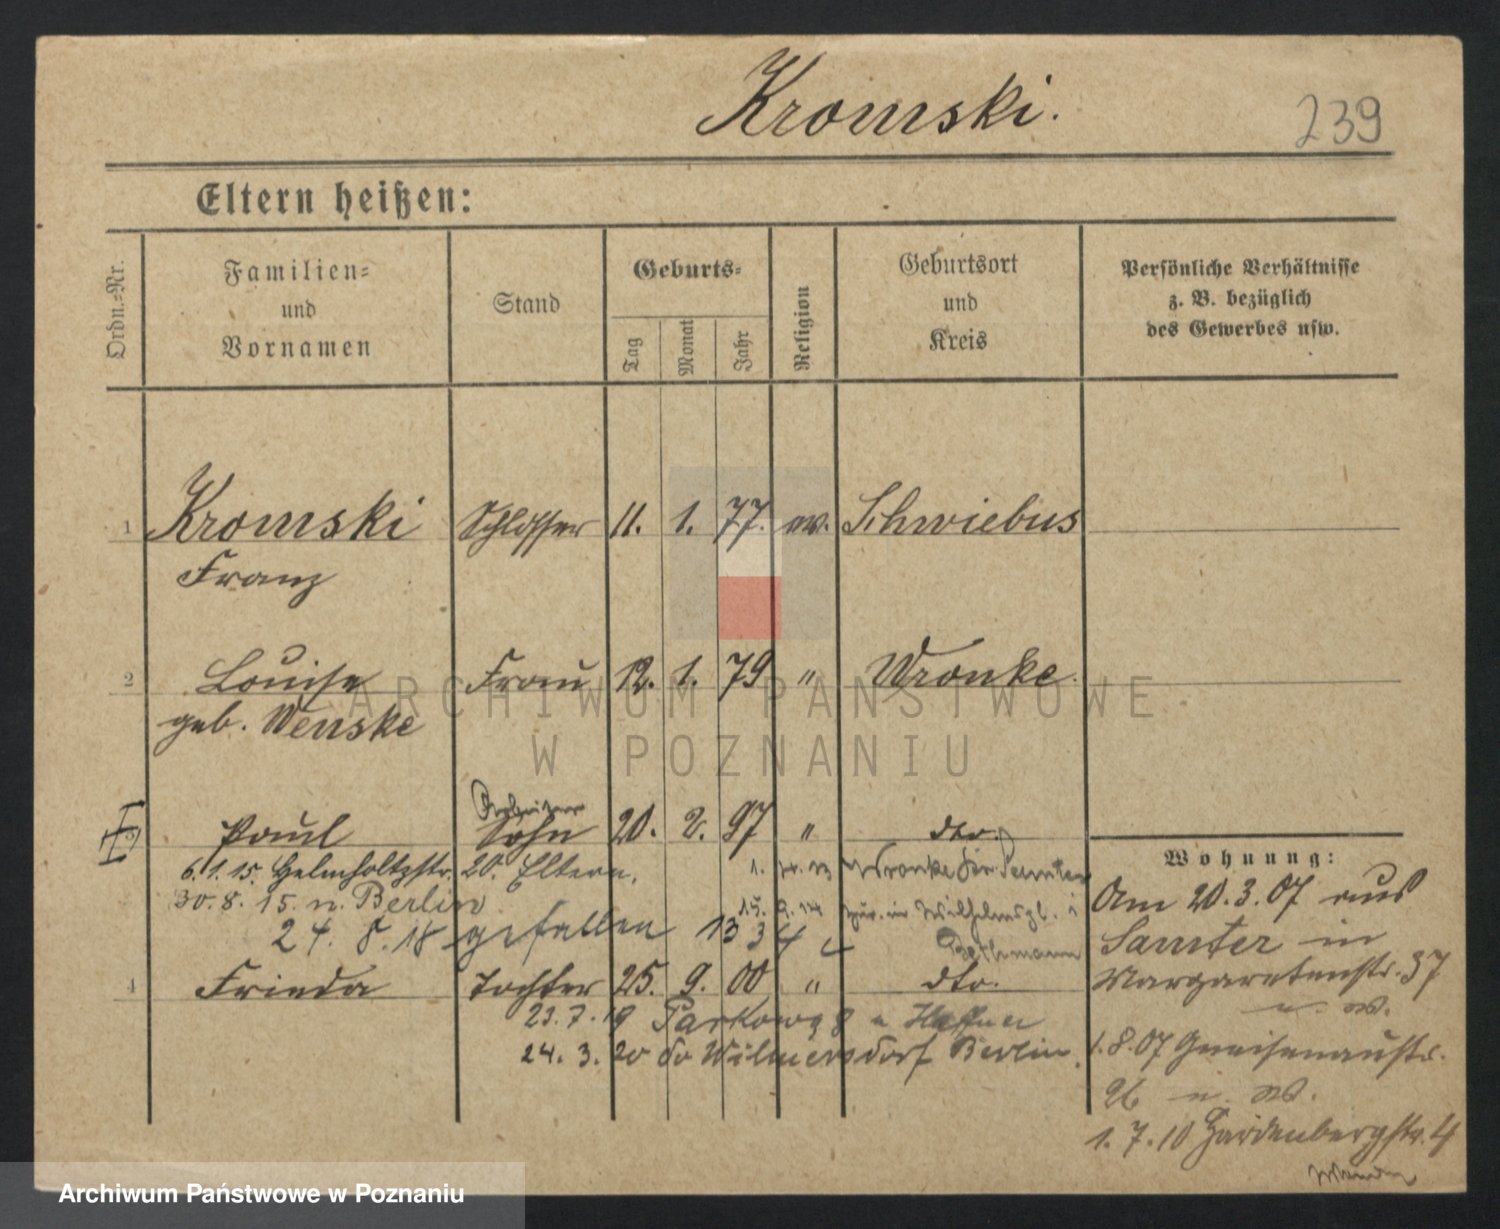 Kromski.
239
Eltern heißen:
Ordn.-Nr.
Familien- und Vornamen
Stand
Geburts-
Tag
Monat
Jahr
Religion
Geburtsort und Kreis
Persönliche Verhältnisse z. B. bezüglich des Gewerbes usw.
1 Kromski Schlosser 11. 1. 77. ev. Schwiebus
Franz
2 Louise Frau 12. 1. 79 " Wronke.
geb. Wenske
Arbeiter
Paul Sohn 20. 2. 97 " dto.
6.1.15. Helmholtzstr. 20. Eltern.
30.8.15. n. Berlin
24. 8. 18 gefallen
4 Frieda Tochter 25. 9. 00 " dto.
23.7.19
24. 3. 20 do Wilmersdorf Berlin.
Wohnung:
Am 20.3.07 aus
Samter in
Margaretenstr. 37
1.8.07 Gneisenaustr.
26
1.7.10 Hardenbergstr. 4
ARCHIWUM PAŃSTWOWE
W POZNANIU
Archiwum Państwowe w Poznaniu